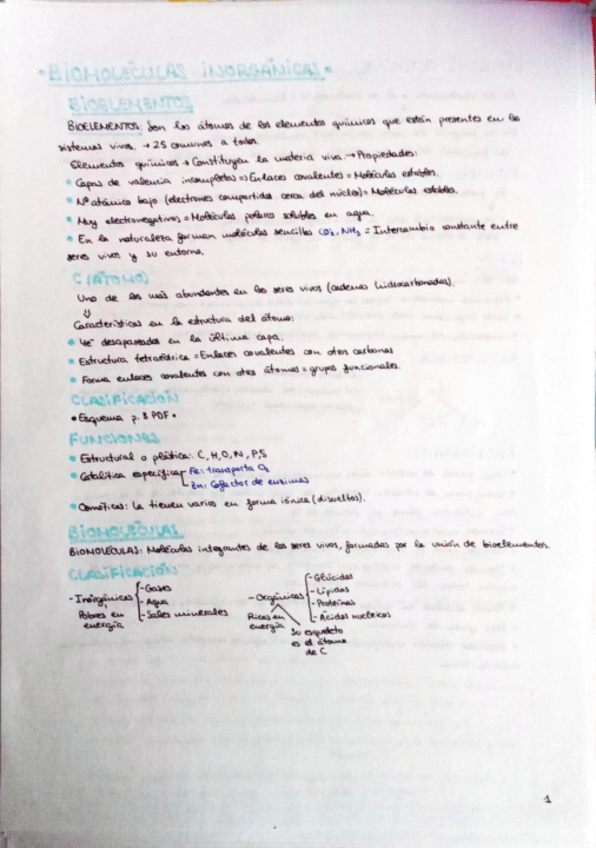 • BIOMOLÉCULAS INORGÁNICAS •
BIOELEMENTOS
BIOELEMENTOS: Son los átomos de los elementos químicos que están presentes en los
sistemas vivos. → 25 comunes a todos.
Elementos químicos → Constituyen la materia viva. → Propiedades:
• Capas de valencia incompletas ⇒ Enlaces covalentes = Moléculas estables.
• Nº atómico bajo (electrones compartidos cerca del núcleo) = Moléculas estables.
• Muy electronegativos = Moléculas polares solubles en agua.
• En la naturaleza forman moléculas sencillas CO₂, NH₃ = Intercambio constante entre
seres vivos y su entorno.
C (ÁTOMO)
Uno de los más abundantes en los seres vivos (cadenas hidrocarbonadas).
⇓
Características en la estructura del átomo:
• 4e⁻ desapareados en la última capa.
• Estructura tetraédrica = Enlaces covalentes con otros carbonos
• Forma enlaces covalentes con otros átomos = grupos funcionales.
CLASIFICACIÓN
• Esquema p. 8 PDF •
FUNCIONES
• Estructural o plástica: C, H, O, N, P, S
• Catalítica específica - Fe: transporta O₂
- Zn: Cofactor de enzimas
• Osmóticas: La tienen varios en forma iónica (disueltos).
BIOMOLÉCULAS
BIOMOLÉCULAS: Moléculas integrantes de los seres vivos, formadas por la unión de bioelementos.
CLASIFICACIÓN
- Inorgánicas
- Gases
- Agua
- Sales minerales
Pobres en
energía
- Orgánicas
- Glúcidos
- Lípidos
- Proteínas
- Ácidos nucleicos
Ricas en
energía
Su esqueleto
es el átomo
de C
1